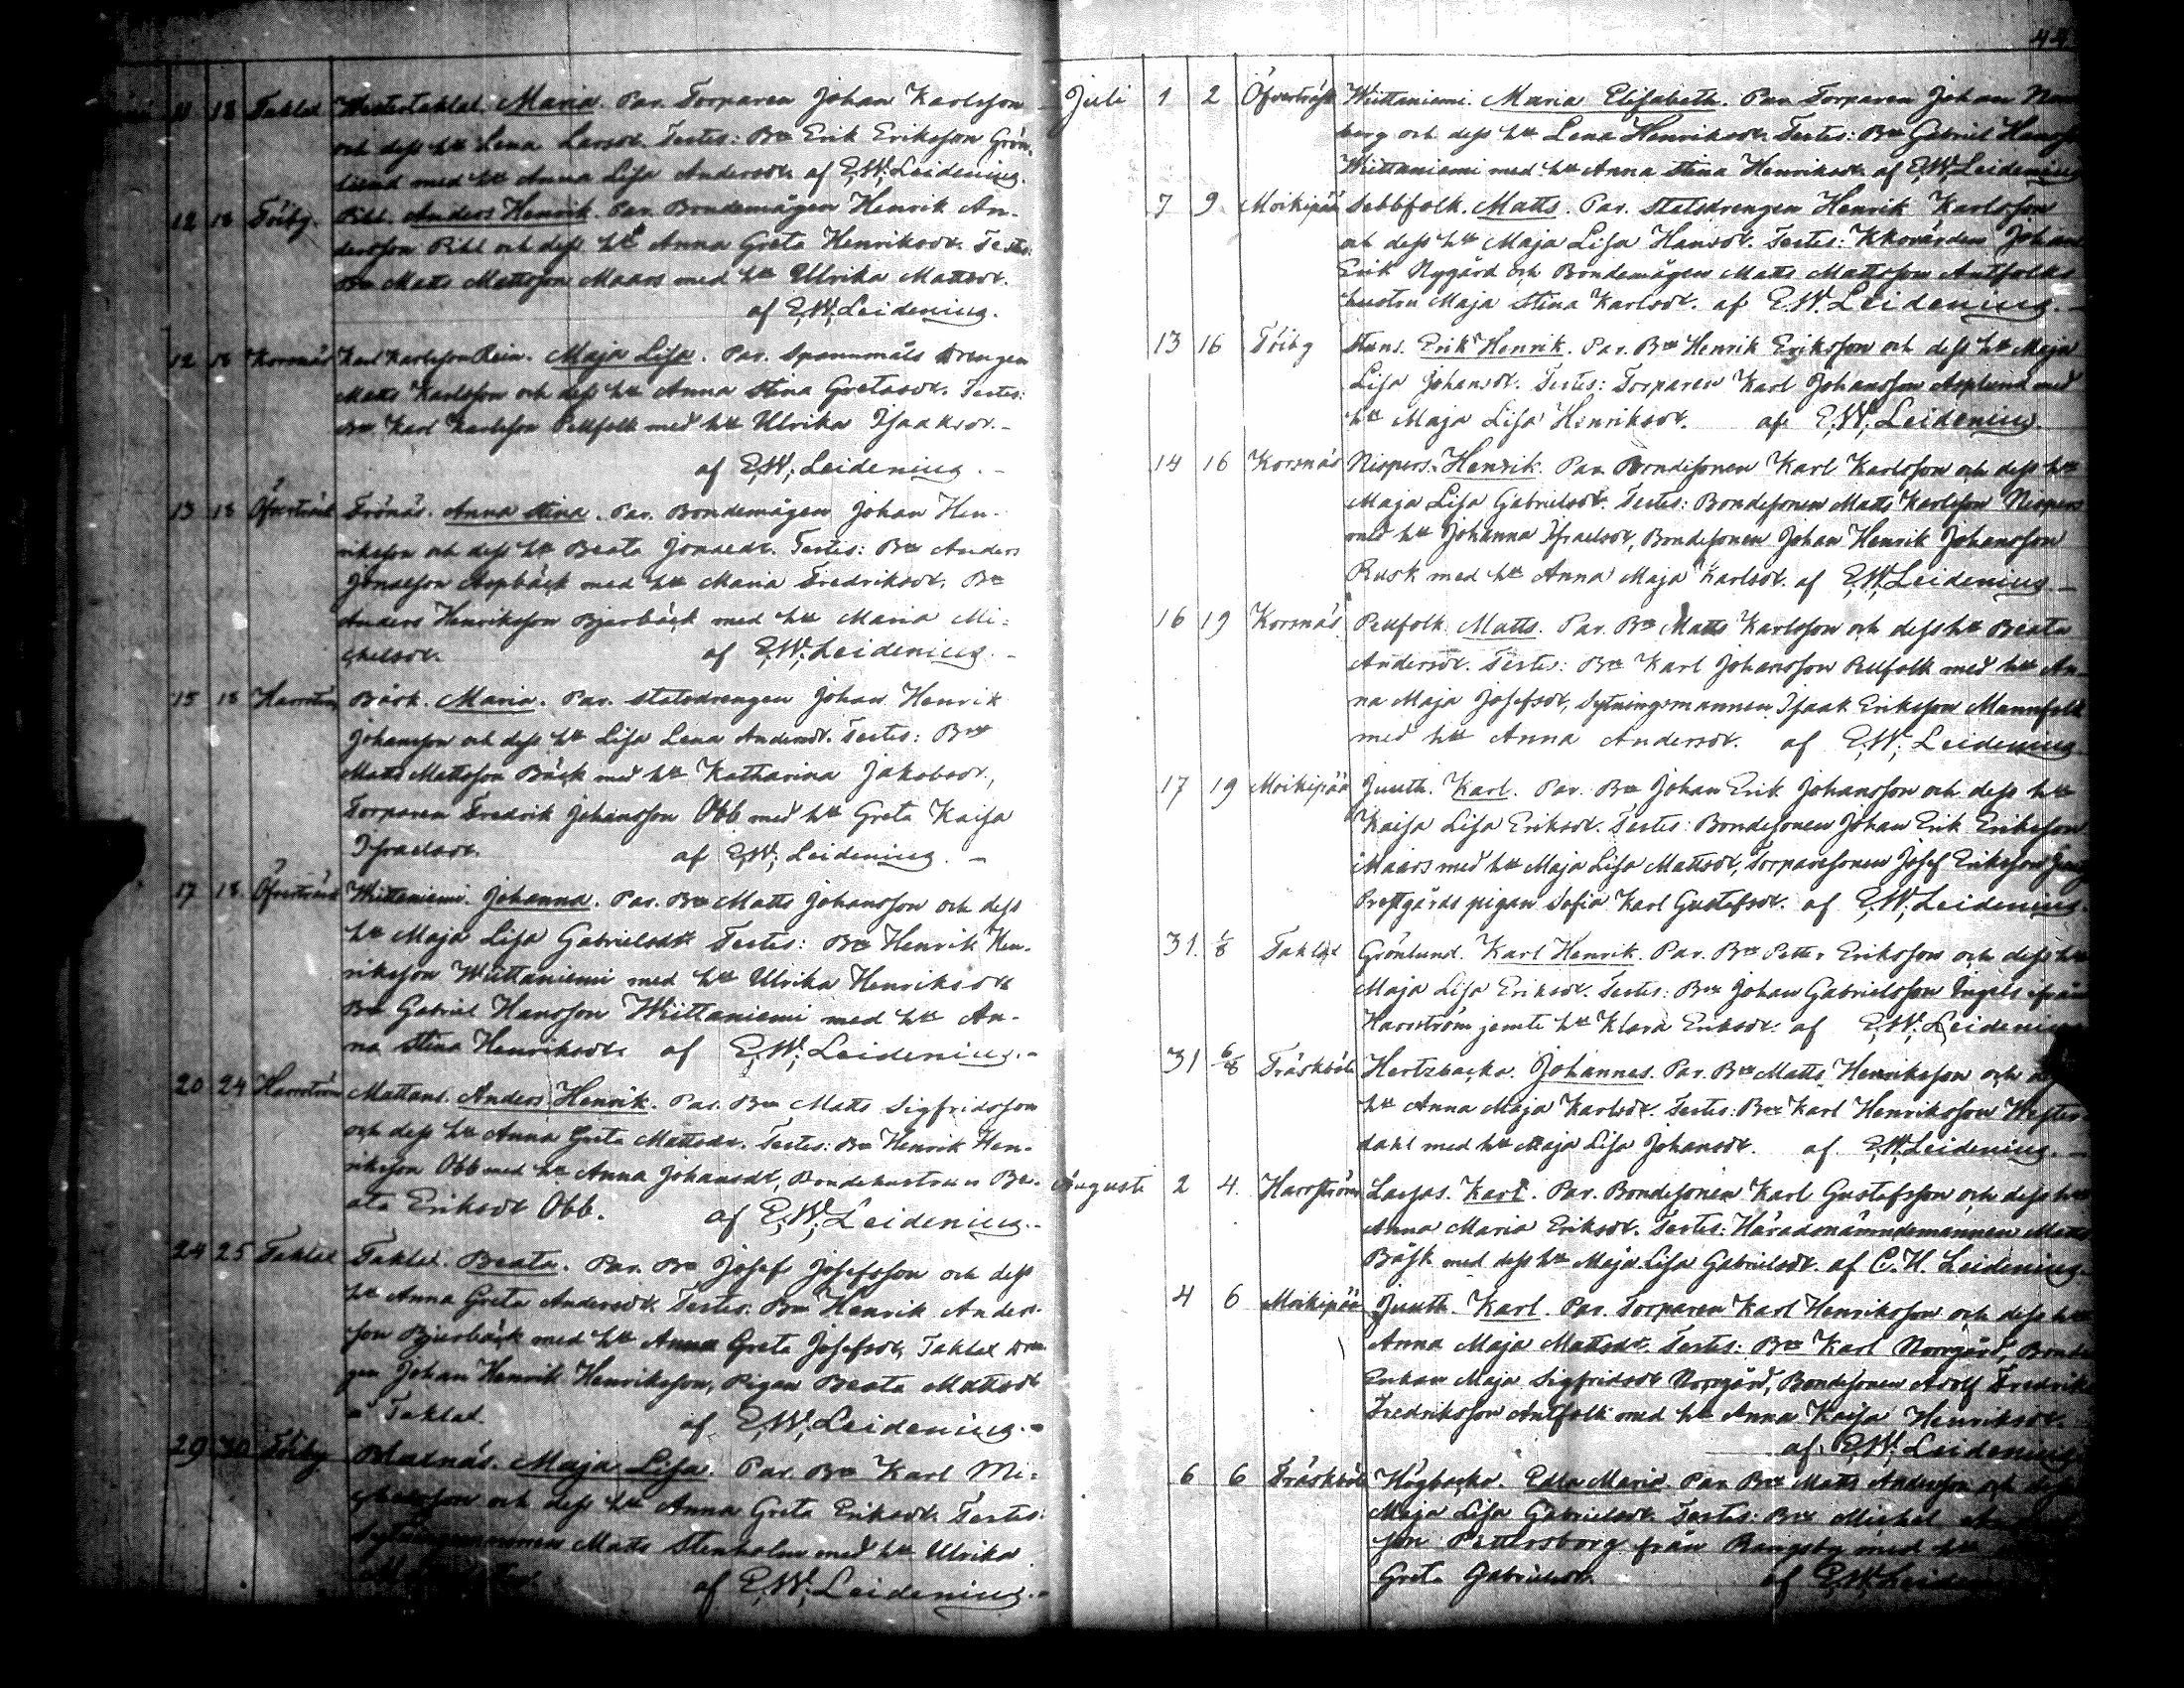 11 18 Taklax Westertaklax. Maria. Par. Torparen Johan Karlsson
och dess h. Lena Larsdr. Testes: Bn Erik Eriksson Grön-
lund med h. Anna Lisa Andersdr. af E.W. Leidenius.
12 18 Töiby. Pihl. Anders Henrik. Par. Bondemågen Henrik An-
dersson Pihl och dess h. Anna Greta Henriksdr. Testes:
Bn Matts Mattsson Maars med h. Ulrika Mattsdr.
af E.W. Leidenius.
12 18 Korsnäs Karl Karlsson Rein. Maja Lisa. Par. Spannmåls drengen
Matts Karlsson och dess h. Anna Stina Gretasdr. Testes:
Bn Karl Karlsson Pellfolk med h. Ulrika Isaaksdr. –
af E.W. Leidenius. –
13 18 Öfverträsk Frönäs. Anna Stina. Par. Bondemågen Johan Hen-
riksson och dess h. Beata Jonsedr. Testes: Bn Anders
Jonasson Aspbäck med h. Maria Fredriksdr, Bn
Anders Henriksson Bjurbäck med h. Maria Mi-
chelsdr. af E.W. Leidenius. –
15 18 Harrström Båsk. Maria. Par. Statsdrengen Johan Henrik
Johansson och dess h. Lisa Lena Andersdr. Testes: Bn
Matts Mattsson Båsk med h. Katharina Jakobsdr,
Torparen Fredrik Johansson Obb med h. Greta Kaisa
Israelsdr. af E.W. Leidenius. –
17 18. Öfverträsk Wiittaniemi. Johanna. Par. Bn Matts Johansson och dess
h. Maja Lisa Gabrielsdr. Testes: Bn Henrik Hen-
riksson Wiittaniemi med h. Ulrika Henriksdr
Bn Gabriel Hansson Wiittaniemi med h. An-
na Stina Henriksdr. af E.W. Leidenius. –
20 24 Harrström Mattans. Anders Henrik. Par. Bn Matts Sigfridsson
och dess h. Anna Greta Mattsdr. Testes: Bn Henrik Hen-
riksson Obb med h. Anna Johansdr, Bondehustrun Be-
ata Eriksdr Obb. af E.W. Leidenius. –
24 25 Taklax Taklax. Beata. Par. Bn Josef Josefsson och dess
h. Anna Greta Andersdr. Testes. Bn Henrik Anders-
son Bjurbäck med h. Anna Greta Josefsdr, Taklax dren-
gen Johan Henrik Henriksson, Pigan Beata Mattsdr
a Taklax. af E.W. Leidenius. –
29 30 Töiby Blaxnäs. Maja Lisa. Par. Bn Karl Mi-
chelsson och dess h. Anna Greta Eriksdr. Testes:
Sytningsmannen Matts Stenholm med h. Ulrika
af E.W. Leidenius. –
44
Juli 1 2 Öfverträsk Wiittaniemi. Maria Elisabeth. Par. Torparen Johan Norr-
berg och dess h. Lena Henriksdr. Testes: Bn Gabriel Hansson
Wiittaniemi med h. Anna Stina Henriksdr. af E.W. Leidenius
7 9 Moikipää Sebbfolk. Matts. Par. Statsdrengen Henrik Karlsson
och dess h. Maja Lisa Hansdr. Testes: Kkovärden Johan
Erik Nygård och Bondemågen Matts Mattsson Antfolks
hustru Maja Stina Karlsdr. af E.W. Leidenius. –
13 16 Töiby Stuns. Erik Henrik. Par. Bn Henrik Eriksson och dess h. Maja
Lisa Johansdr. Testes: Torparen Karl Johansson Asplund med
h. Maja Lisa Henriksdr. af E.W. Leidenius.
14 16 Korsnäs Nispers. Henrik. Par. Bondesonen Karl Karlsson och dess h.
Maja Lisa Gabrielsdr. Testes: Bondesonen Matts Karlsson Nispers
med h. Johanna Israelsdr, Bondesonen Johan Henrik Johansson
Rusk med h. Anna Maja Karlsdr. af E.W. Leidenius. –
16 19 Korsnäs Pellfolk. Matts. Par. Bn Matts Karlsson och dess h. Beata
Andersdr. Testes: Bn Karl Johansson Pellfolk med h. An-
na Maja Josefsdr, Sytningsmannen Isaak Eriksson Mannfolk
med h. Anna Andersdr. af E.W. Leidenius
17 19 Moikipää Juuth. Karl. Par. Bn Johan Erik Johansson och dess h.
Kaisa Lisa Eriksdr. Testes: Bondesonen Johan Erik Eriksson
Maars med h. Maja Lisa Mattsdr, Torparesonen Josef Eriksson
Prestgårds pigan Sofia Karl Gustafsdr. af E.W. Leidenius.
31. 1/8 Taklax Grönlund. Karl Henrik. Par. Bn Petter Eriksson och dess h.
Maja Lisa Eriksdr. Testes: Bn Johan Gabrielsson Ingels ifrån
Harrström jemte h. Klara Eriksdr. af E.W. Leidenius
31 6/8 Träskböle Hertzbacka. Johannes. Par. Bn Matts Henriksson och dess
h. Anna Maja Karlsdr. Testes: Bn Karl Henriksson Wester-
dahl med h. Maja Lisa Johansdr. af E.W. Leidenius. –
Augusti 2 4. Harrström Lassas. Karl. Par. Bondesonen Karl Gustafsson och dess h.
Anna Maria Eriksdr. Testes: Häradsnämndemannen Matts
Båsk med dess h. Maja Lisa Gabrielsdr. af C.H. Leidenius.
4 6 Moikipää Juuth. Karl. Par. Torparen Karl Henriksson och dess h.
Anna Maja Mattsdr. Testes: Bn Karl Norrgård, Bonde
Enkan Maja Sigfridsdr Norrgård, Bondesonen Adolf Fredrik
Fredriksson Antfolk med h. Anna Kaisa Henriksdr.
af E.W. Leidenius
6 6 Träskböle Högbacka. Edla Maria. Par. Bn Matts Andersson och dess
Maja Lisa Gabrielsdr. Testes: Bn Michel
son Pettersborg från Rangsby med h.
Greta Gabrielsdr. af E.W. Leidenius